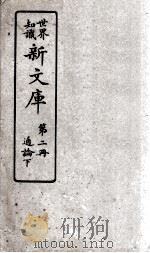 世界
知識
新文庫
第二冊
通論下